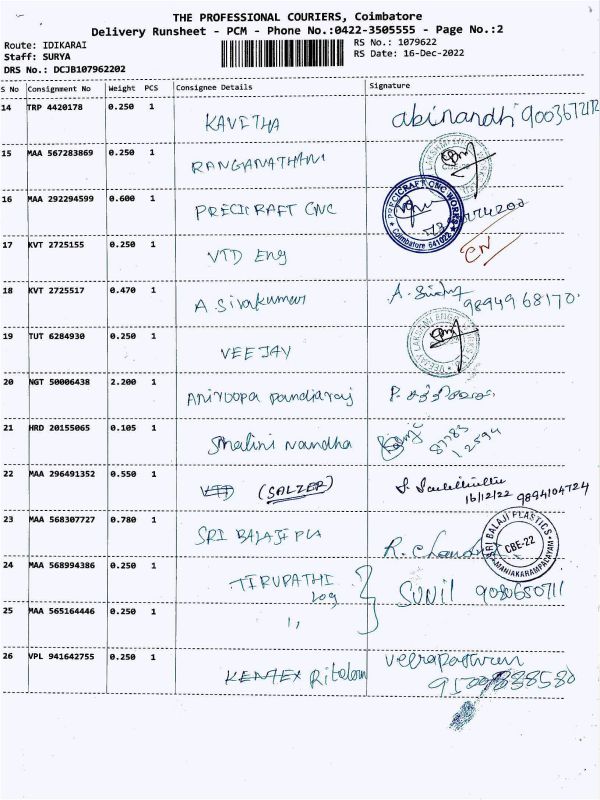 THE PROFESSIONAL COURIERS, Coimbatore
Delivery Runsheet - PCM - Phone No.:0422-3505555 - Page No.:2
Route: IDIKARAI RS No.: 1079622
Staff: SURYA RS Date: 16-Dec-2022
DRS No.: DCJB107962202
S No Consignment No Weight PCS Consignee Details Signature
14 TRP 4420178 0.250 1 KAVITHA abinandhi
15 MAA 567283869 0.250 1 RANGANATHAN
16 MAA 292294599 0.600 1 PRECICRAFT CNC PRECICRAFT CNC WORKS Coimbatore 641022
17 KVT 2725155 0.250 1 VTD Eng
18 KVT 2725517 0.470 1 A Sivakumar 9894968170
19 TUT 6284930 0.250 1 VEEJAY
20 NGT 50006438 2.200 1 Aniroopa pandiaraj
21 HRD 20155065 0.105 1 Shalini nandha 81783 12594
22 MAA 296491352 0.550 1 VTD (SALZER) 16/12/22 9894104724
23 MAA 568307727 0.780 1 SRI BALAJI PLA SRI BALAJI PLASTICS CBE-22
24 MAA 568994386 0.250 1 TIRUPATHI Log SUNIL 9080650711
25 MAA 565164446 0.250 1 ,,
26 VPL 941642755 0.250 1 KENTEX